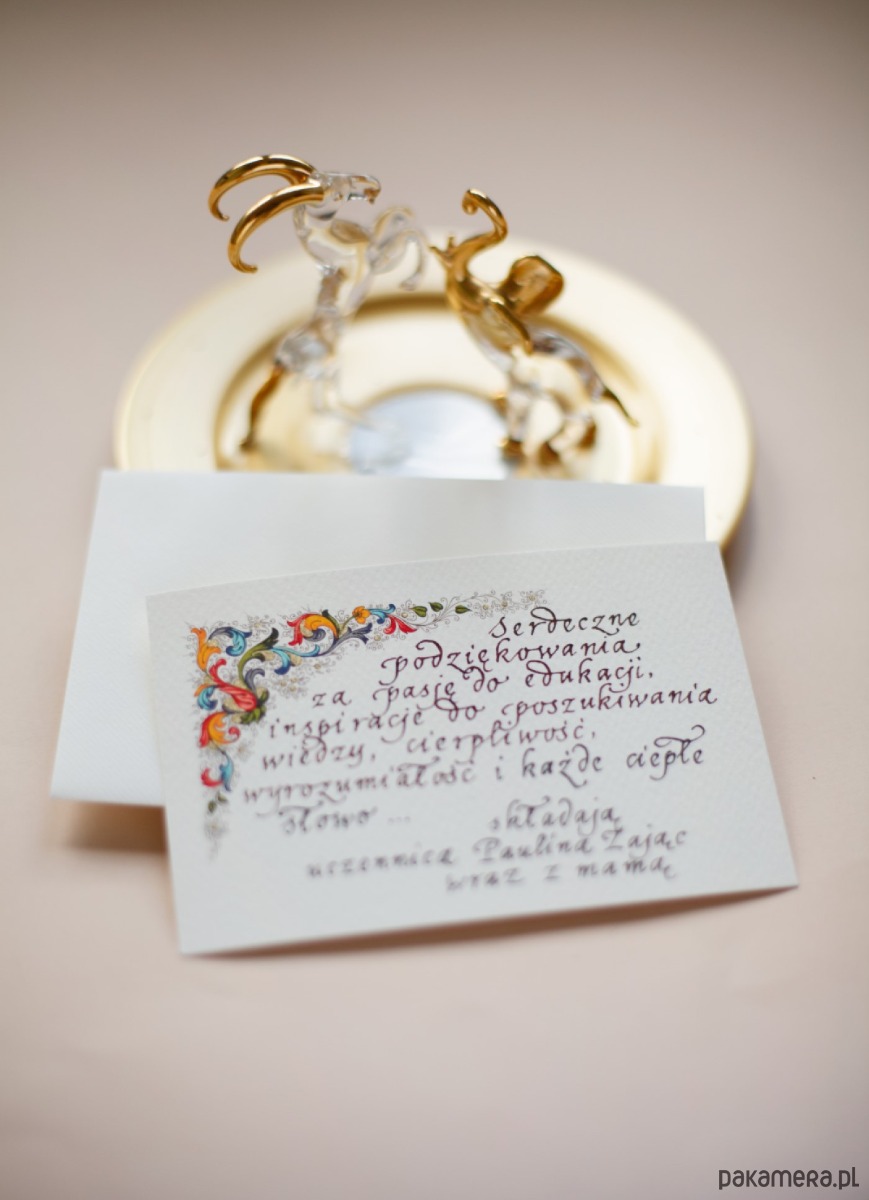 Serdeczne
podziękowania
za pasję do edukacji,
inspirację do poszukiwania
wiedzy, cierpliwość,
wyrozumiałość i każde ciepłe
słowo... składają
uczennica Paulina Zając
wraz z mamą
pakamera.pl